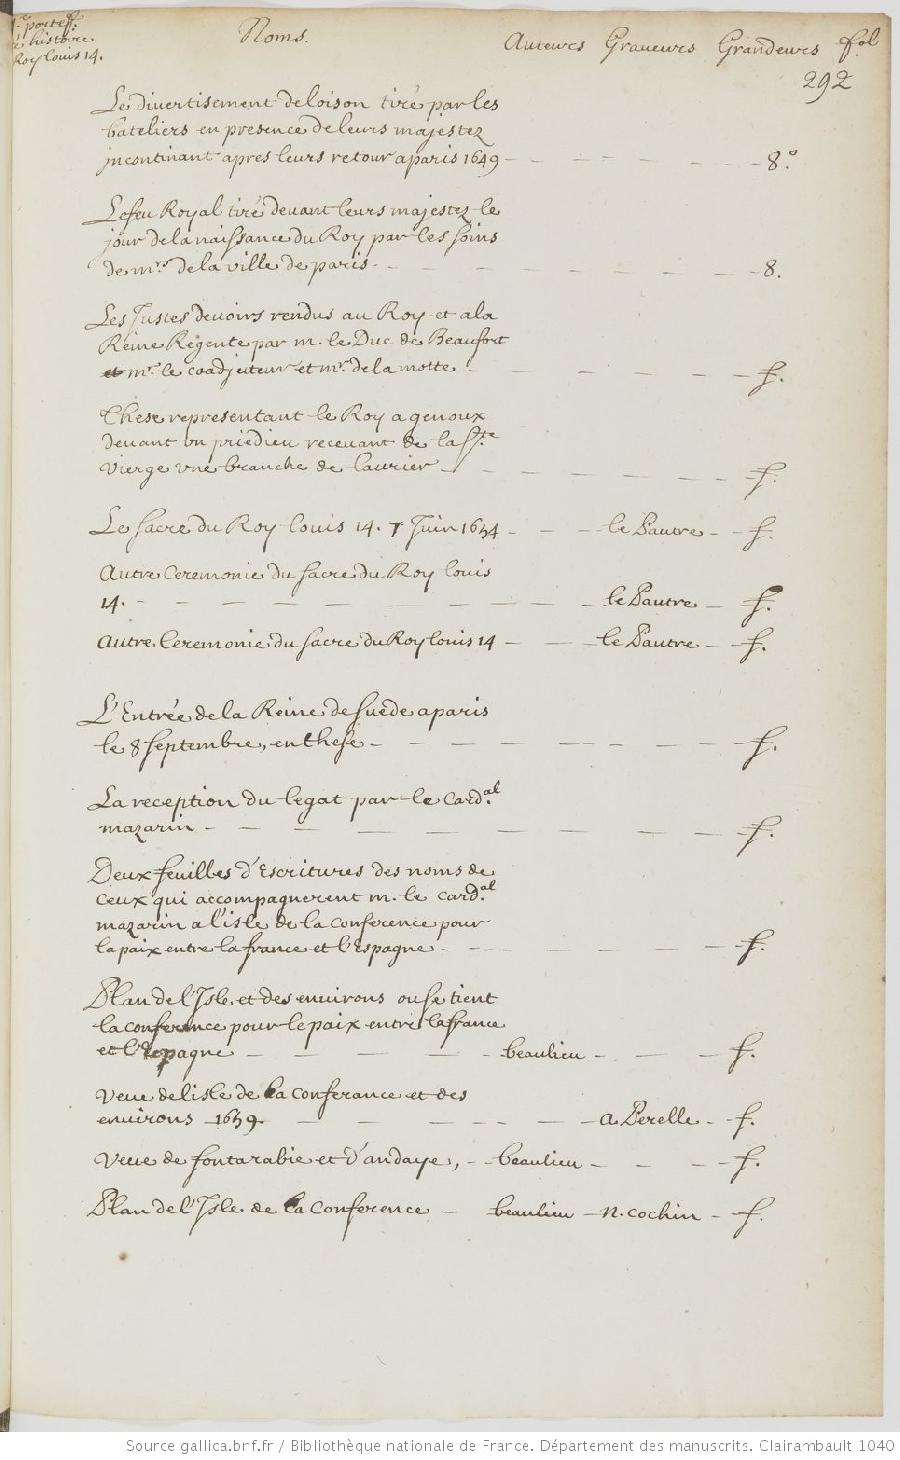 portef.
histoire.
Roy louis 14.
Noms. Auteurs Graveurs Grandeurs fol
292
Le divertisement de loison tiré par les
bateliers en presence de leurs majestez
jncontinant apres leurs retour a paris 1649 - - - - - - 8.º
Le feu Royal tiré devant leurs majestez le
jour de la naissance du Roy par les soins
de mrs de la ville de paris - - - - - - - 8.
Les Justes devoirs rendus au Roy et a la
Reine Regente par m. le Duc de Beaufort
et mr. le coadjuteur et mr. de la motte - - - - - f.
These representant le Roy a genoux
devant vn priedieu recevant de la Ste
vierge vne branche de laurier - - - - - - f.
Le sacre du Roy louis 14. 7 Juin 1654 - - - le Pautre - f.
Autre Ceremonie du sacre du Roy louis
14. - - - - - - - - - le Pautre - f.
Autre Ceremonie du sacre du Roy louis 14 - - - le Pautre - f.
L'Entrée de la Reine de suede a paris
le 8 septembre, en these - - - - - - - f.
La reception du legat par le Card.al
mazarin - - - - - - - - - f.
Deux feuilles d'Escritures des noms de
ceux qui accompagnerent m. le card.al
mazarin a l'isle de la conference pour
la paix entre la france et l'Espagne - - - - - - f.
Plan de l'Isle et des environs ou se tient
la conference pour le paix entre la france
et l'Espagne - - - - - beaulieu - - - f.
Veue de lisle de la conferance et des
environs 1659 - - - - - - a Perelle - f.
Veue de fontarabie et d'andaye, - beaulieu - - - f.
Plan de l'Isle de la Conference - beaulieu - N. cochin - f.
Source gallica.bnf.fr / Bibliothèque nationale de France. Département des manuscrits. Clairambault 1040